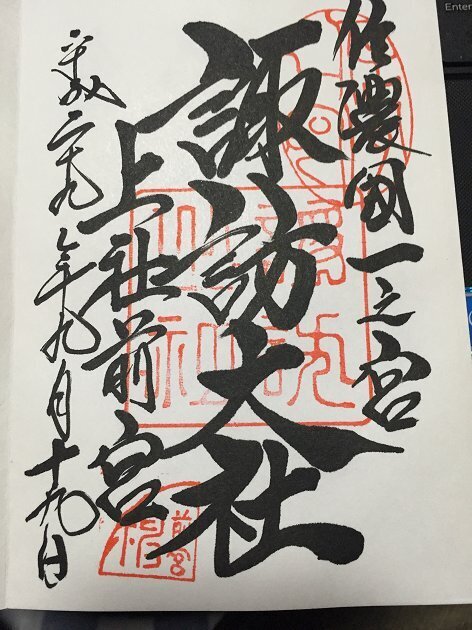 信濃國一之宮
諏訪大社
上社前宮
平成二十九年九月十九日
前宮
Enter